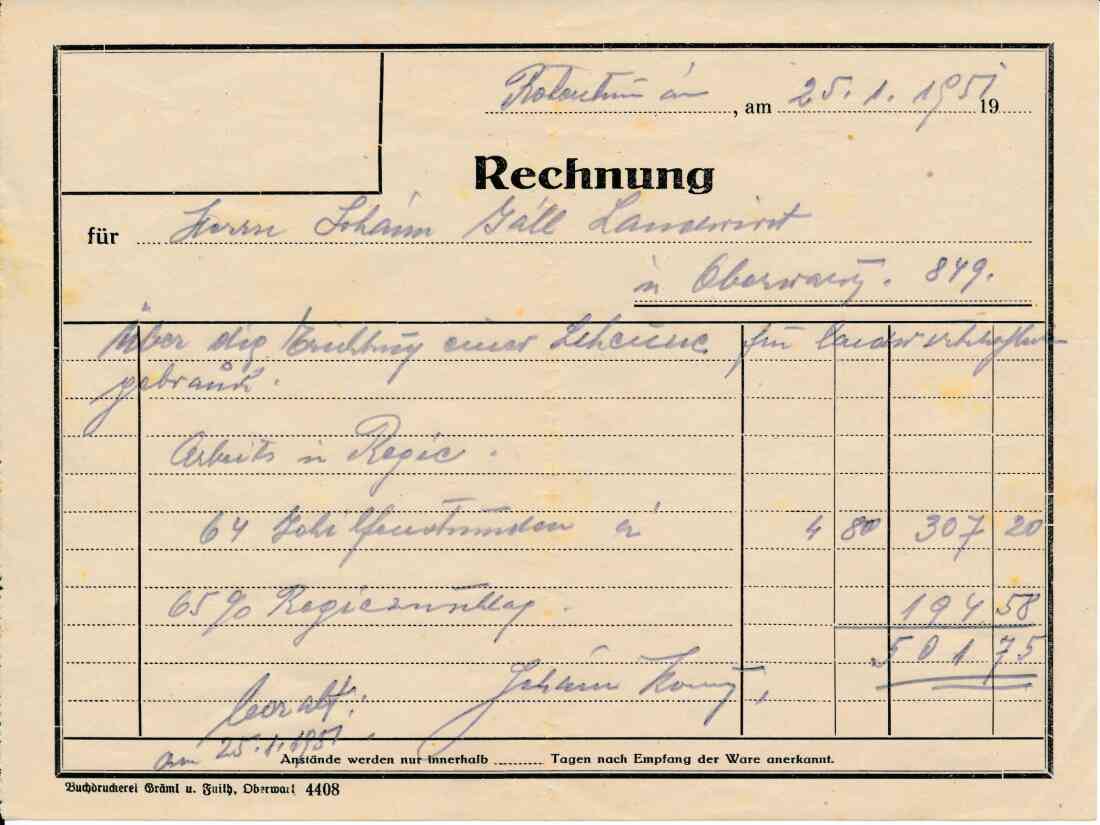 am 25.1.1951 19
Rechnung
für Herrn Johánn Gáll Landwirt
in Oberwart. 849.
Über die Errichtung einer Scheune für landwirtschaftliche
gebrauch.
Arbeits in Regie.
64 Gehilfenstunden á 4 80 307 20
65% Regiezuschlag. 194 58
501 75
Johánn
am 25.1.1951
Anstände werden nur innerhalb Tagen nach Empfang der Ware anerkannt.
Buchdruckerei Gräml u. Fuith, Oberwart 4408